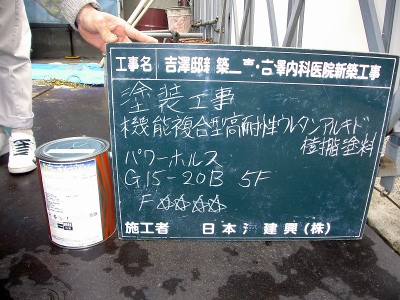 工事名 吉澤邸新築工事・吉澤内科医院新築工事
塗装工事
機能複合型高耐性ウレタンアルキド
樹脂塗料
パワーホルス
G15-20B 5F
F☆☆☆☆
施工者 日本 建興(株)